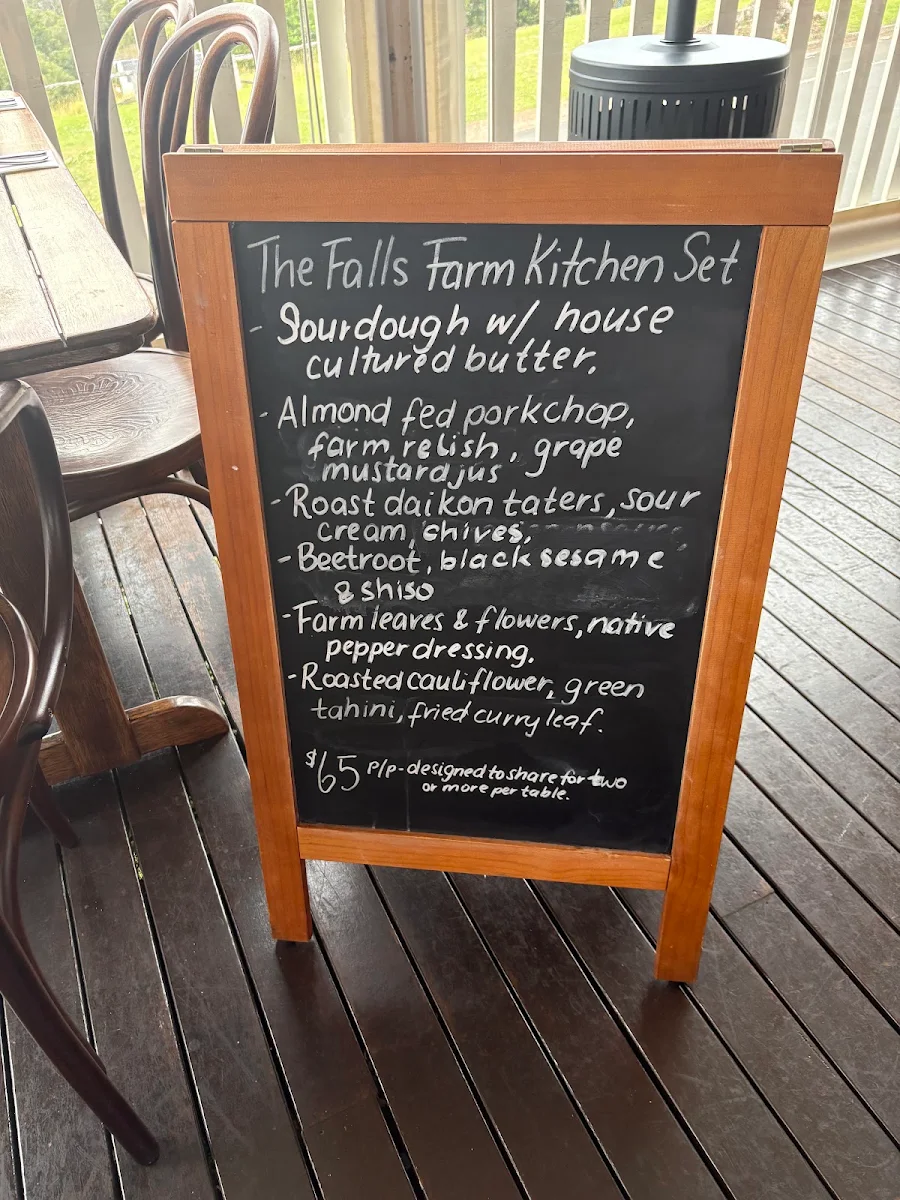 The Falls Farm Kitchen Set
- Sourdough w/ house
cultured butter.
- Almond fed porkchop,
farm relish, grape
mustard jus
- Roast daikon taters, sour
cream, chives.
- Beetroot, black sesame
& shiso
- Farm leaves & flowers, native
pepper dressing.
- Roasted cauliflower, green
tahini, fried curry leaf.
$65 P/p - designed to share for two
or more per table.